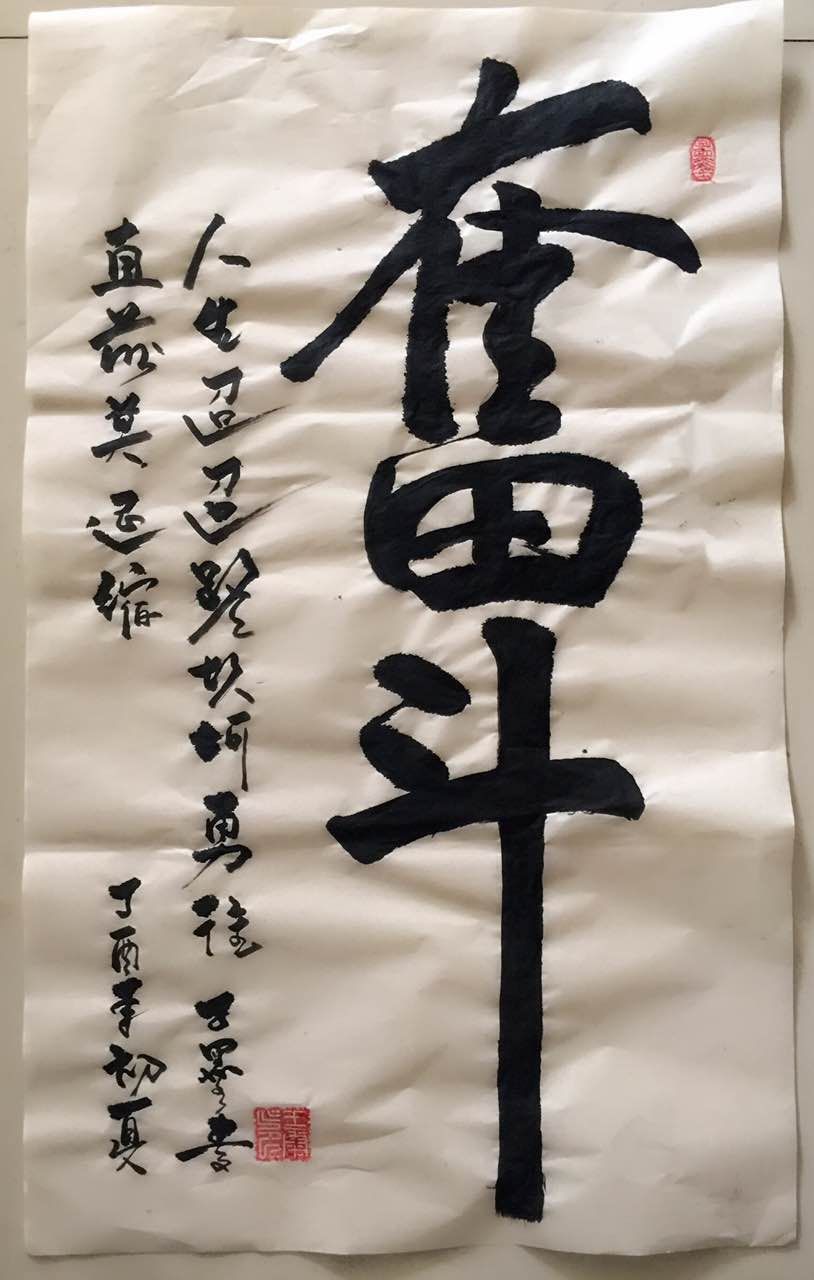 奮斗
人生迢迢路坎坷勇往
直前莫退缩
丁酉年初夏
子墨書